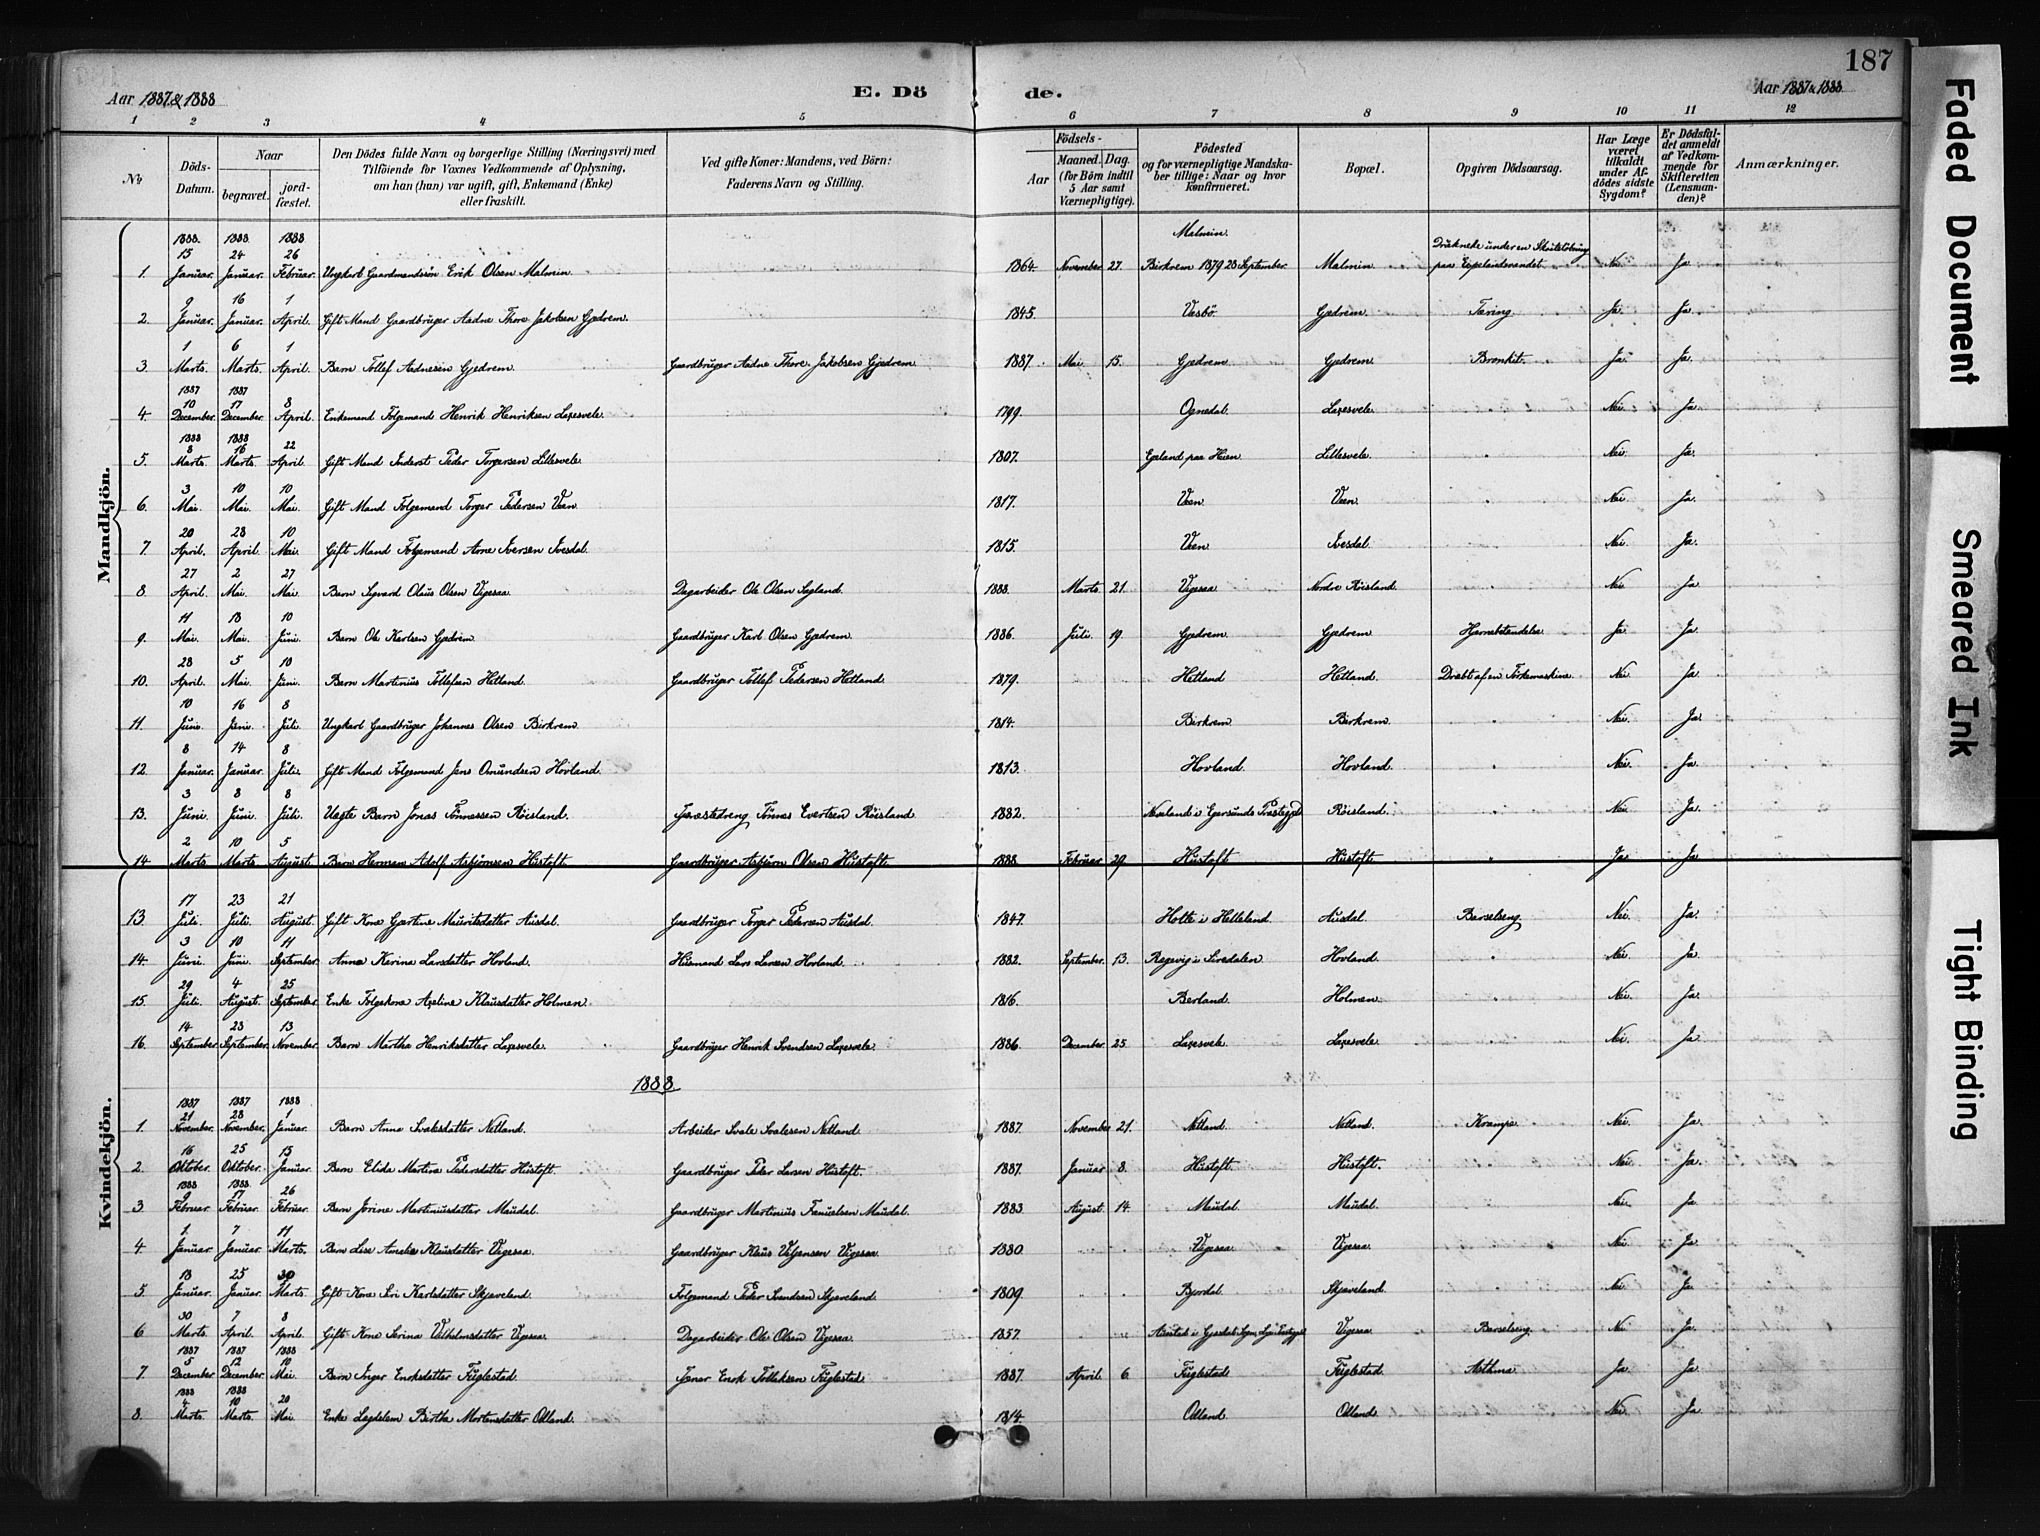 187
Aar 1887 & 1888
E. Dö de.
Aar 1887 & 1888
1 2 3 4 5 6 7 8 9 10 11 12
No
Döds-Datum.
Naar
begravet.
jordfæstet.
Den Dödes fulde Navn og borgerlige Stilling (Næringsvei) med
Tilföiende for Voxnes Vedkommende af Oplysning,
om han (hun) var ugift, gift, Enkemand (Enke)
eller fraskilt.
Ved gifte Koner: Mandens, ved Börn:
Faderens Navn og Stilling.
Födsels-
Aar
Maaned. Dag.
(for Börn indtil
5 Aar samt
Værnepligtige).
Födested
og for værnepligtige Mandskaber tillige: Naar og hvor
konfirmeret.
Bopæl.
Opgiven Dödsaarsag.
Har Læge
været
tilkaldt
under Afdödes sidste
Sygdom?
Er Dödsfaldet anmeldt
af Vedkommende for
Skifteretten
(Lensmanden)?
Anmærkninger.
Mandkjön.
1888. 1888. 1888 Malmin.
15 24 26 Druknede under en Skøiteløbning
1. Januar. Januar. Februar. Ungkarl Gaardmandssøn Erik Olsen Malmin. 1864. November 27. Birkrem 1879 28 September. Malmin paa Espelandsvandet. Nei Ja
9 16 1
2. Januar. Januar. April. Gift Mand Gaardbruger Aadne Thore Jakobsen Gjedrem. 1845. Vasbö. Gjedrem. Tæring. Ja. Ja.
1 6 1
3. Marts. Marts. April. Barn Tollef Aadnesen Gjedrem. Gaardbruger Aadne Thore Jakobsen Gjedrem. 1887. Mai. 15. Gjedrem. Gjedrem. Bronkit. Ja. Ja.
1887 1887
10 17 8
4. December. December. April. Enkemand Folgemand Henrik Henriksen Laxesvele. 1799. Ognedal. Laxesvele. Nei. Ja.
1888 1888
8 16 22
5. Marts. Marts. April. Gift Mand Inderst Peder Torgersen Lillesvele. 1807. Egeland paa Heien. Lillesvele. " Nei. Ja.
3 10 10
6. Mai. Mai. Mai. Gift Mand Folgemand Torger Pedersen Veen. 1817. Veen. Veen. " Nei. Ja.
20 28 10
7 April. April. Mai. Gift Mand Folgemand Arne Iversen Ivesdal. 1815. Veen. Ivesdal. " Nei. Ja.
27 2 27
8. April. Mai. Mai. Barn Sigvard Olaus Olsen Vigesaa. Dagarbeider Ole Olsen Segland. 1888. Marts. 21. Vigesaa Nordre Röisland. Nei Ja
11 18 10
9. Mai. Mai. Juni. Barn Ole Karlsen Gjedrem. Gaardbruger Karl Olsen Gjedrem. 1886. Juli. 19. Gjedrem. Gjedrem. Hjernebetændelse Ja Ja
28 5 10
10. April. Mai. Juni. Barn Martinius Tollefsen Hetland. Gaardbruger Tollef Pedersen Hetland. 1879. Hetland Hetland. Dræbt af en Tørkemaskine. Nei. Ja
10 16 8
11. Juni. Juni. Juli. Ungkarl Gaardbruger Johannes Olsen Birkrem. 1814. Birkrem. Birkrem. " Nei. Ja.
8 14 8
12. Januar. Januar. Juli. Gift Mand Folgemand Jens Omundsen Hovland. 1813. Hovland. Hovland. " Nei. Ja.
3 8 8
13. Juni. Juni. Juli. Uægte Barn Jonas Tönnessen Röisland. Tjenestedreng Tönnes Evertsen Röisland 1882. Neveland i Egersunds Præstegjeld. Röisland. " Nei. Ja.
2 10 5
14. Marts. Marts. August. Barn Herman Adolf Asbjørnsen Hustoft. Gaardbruger Asbjørn Olsen Hustoft. 1888. Februar 29. Hustoft. Hustoft. " Ja Ja
Kvindekjön.
17 23 21
13. Juli. Juli. August. Gift Kone Gjertine Mauritsdatter Ausdal. Gaardbruger Torger Pedersen Ausdal. 1847. Holte i Helleland. Ausdal. Barselseng. Nei. Ja.
3 10 11
14. Juni. Juni. September. Anna Karina Larsdatter Hovland. Husmand Lars Larsen Hovland. 1882. September. 13. Regevig i Siredalen. Hovland. " Nei. Ja.
29 4 25
15. Juli. August. September. Enke Folgekone Axeline Klausdatter Holmen. 1816. Berland. Holmen. " Nei. Ja.
14 23 13
16. September. September. November. Barn Martha Henriksdatter Laxesvele. Gaardbruger Henrik Svendsen Laxesvele. 1886. December. 25. Laxesvele. Laxesvele. " Nei. Ja.
1888.
1887 1887 1888
21 28 1
1. November. November. Januar. Barn Anne Svalesdatter Netland. Arbeider Svale Svalesen Netland. 1887. November 21. Netland. Netland. Krampe Nei. Ja
16 25 15
2. Oktober. Oktober. Januar. Barn Elida Martina Pedersdatter Hustoft. Gaardbruger Peder Larsen Hustoft. 1887. Januar 8. Hustoft. Hustoft. " Nei. Ja.
1888 1888
9 17 26
3. Februar. Februar. Februar. Barn Jorine Martiniusdatter Maudal. Gaardbruger Martinius Maudal. 1883. August. 14. Maudal. Maudal. " Nei. Ja
1. 7 11
4 Januar. Januar. Marts. Barn Lise Amalie Klausdatter Vigesaa. Gaardbruger Klaus Vigesaa. 1880. Vigesaa. Vigesaa. Nei Ja
18 25 30
5 Januar. Januar. Marts. Gift Kone Siri Karlsdatter Skjæveland. Folgemand Peder Svendsen Skjæveland. 1809 Bjordal. Skjæveland. " Nei. Ja
30 7 8
6 Marts. April. April. Gift Kone Serina Vilhelmsdatter Vigesaa. Dagarbeider Ole Olsen Vigesaa. 1857. Vigesaa. Barselseng. Nei Ja.
1887 1887 1888
5 12 10
7 December. December. Mai. Barn Inger Enoksdatter Fuglestad. Enok Tolleksen Fuglestad. 1887. April. 6. Fuglestad. Fuglestad. Asthma Ja Ja.
1888 1888
4 10 20
8. Marts. Marts. Mai. Enke Lægdslem Birthe Mortensdatter Odland. 1814. Odland Odland Nei. Ja
Faded Document
Smeared Ink
Tight Binding